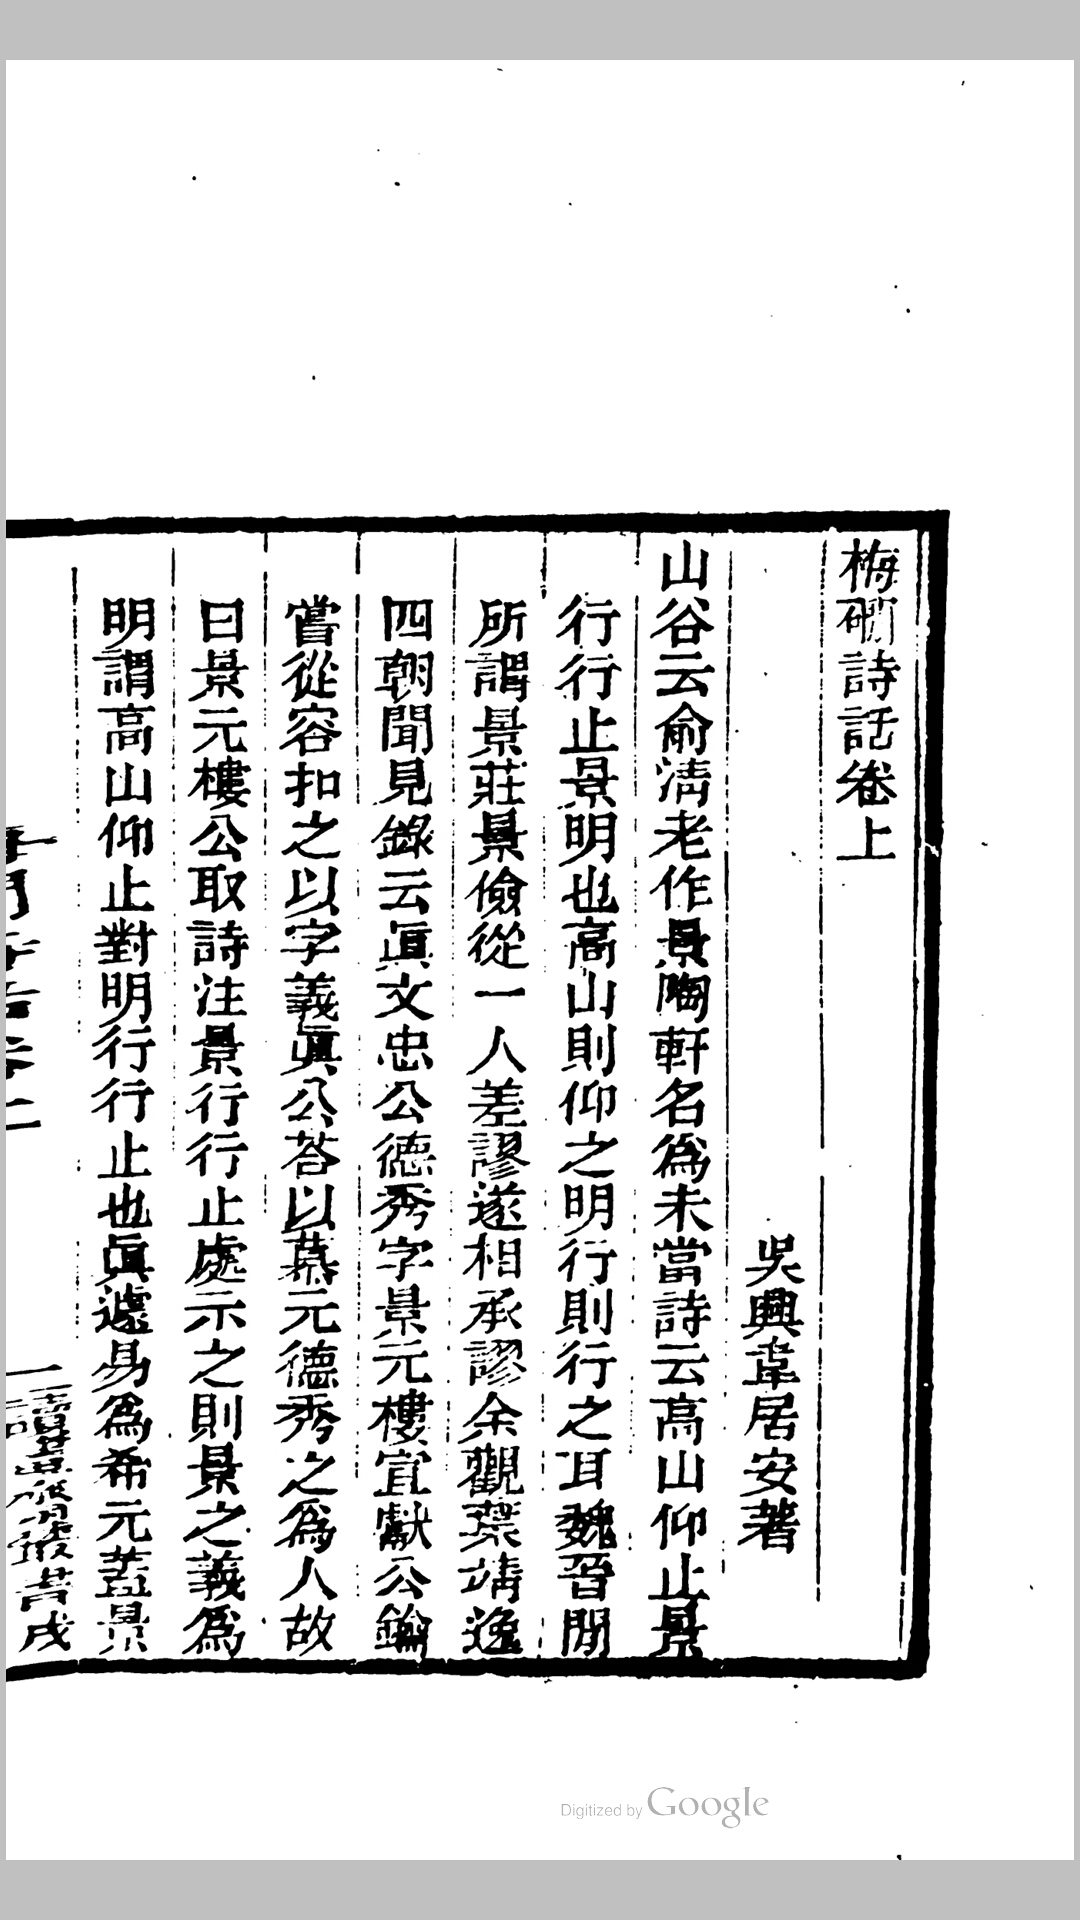 梅磵詩話卷上
吳興韋居安著
山谷云俞清老作景陶軒名爲未當詩云高山仰止景
行行止景明也高山則仰之明行則行之耳魏晉閒
所謂景莊景儉從一人差謬遂相承謬余觀葉靖逸
四朝聞見錄云眞文忠公德秀字景元樓宣獻公鑰
嘗從容扣之以字義眞公荅以慕元德秀之爲人故
曰景元樓公取詩注景行行止處示之則景之義爲
明謂高山仰止對明行行止也眞遽易爲希元蓋景
讀畫齋叢書戊
Digitized by Google